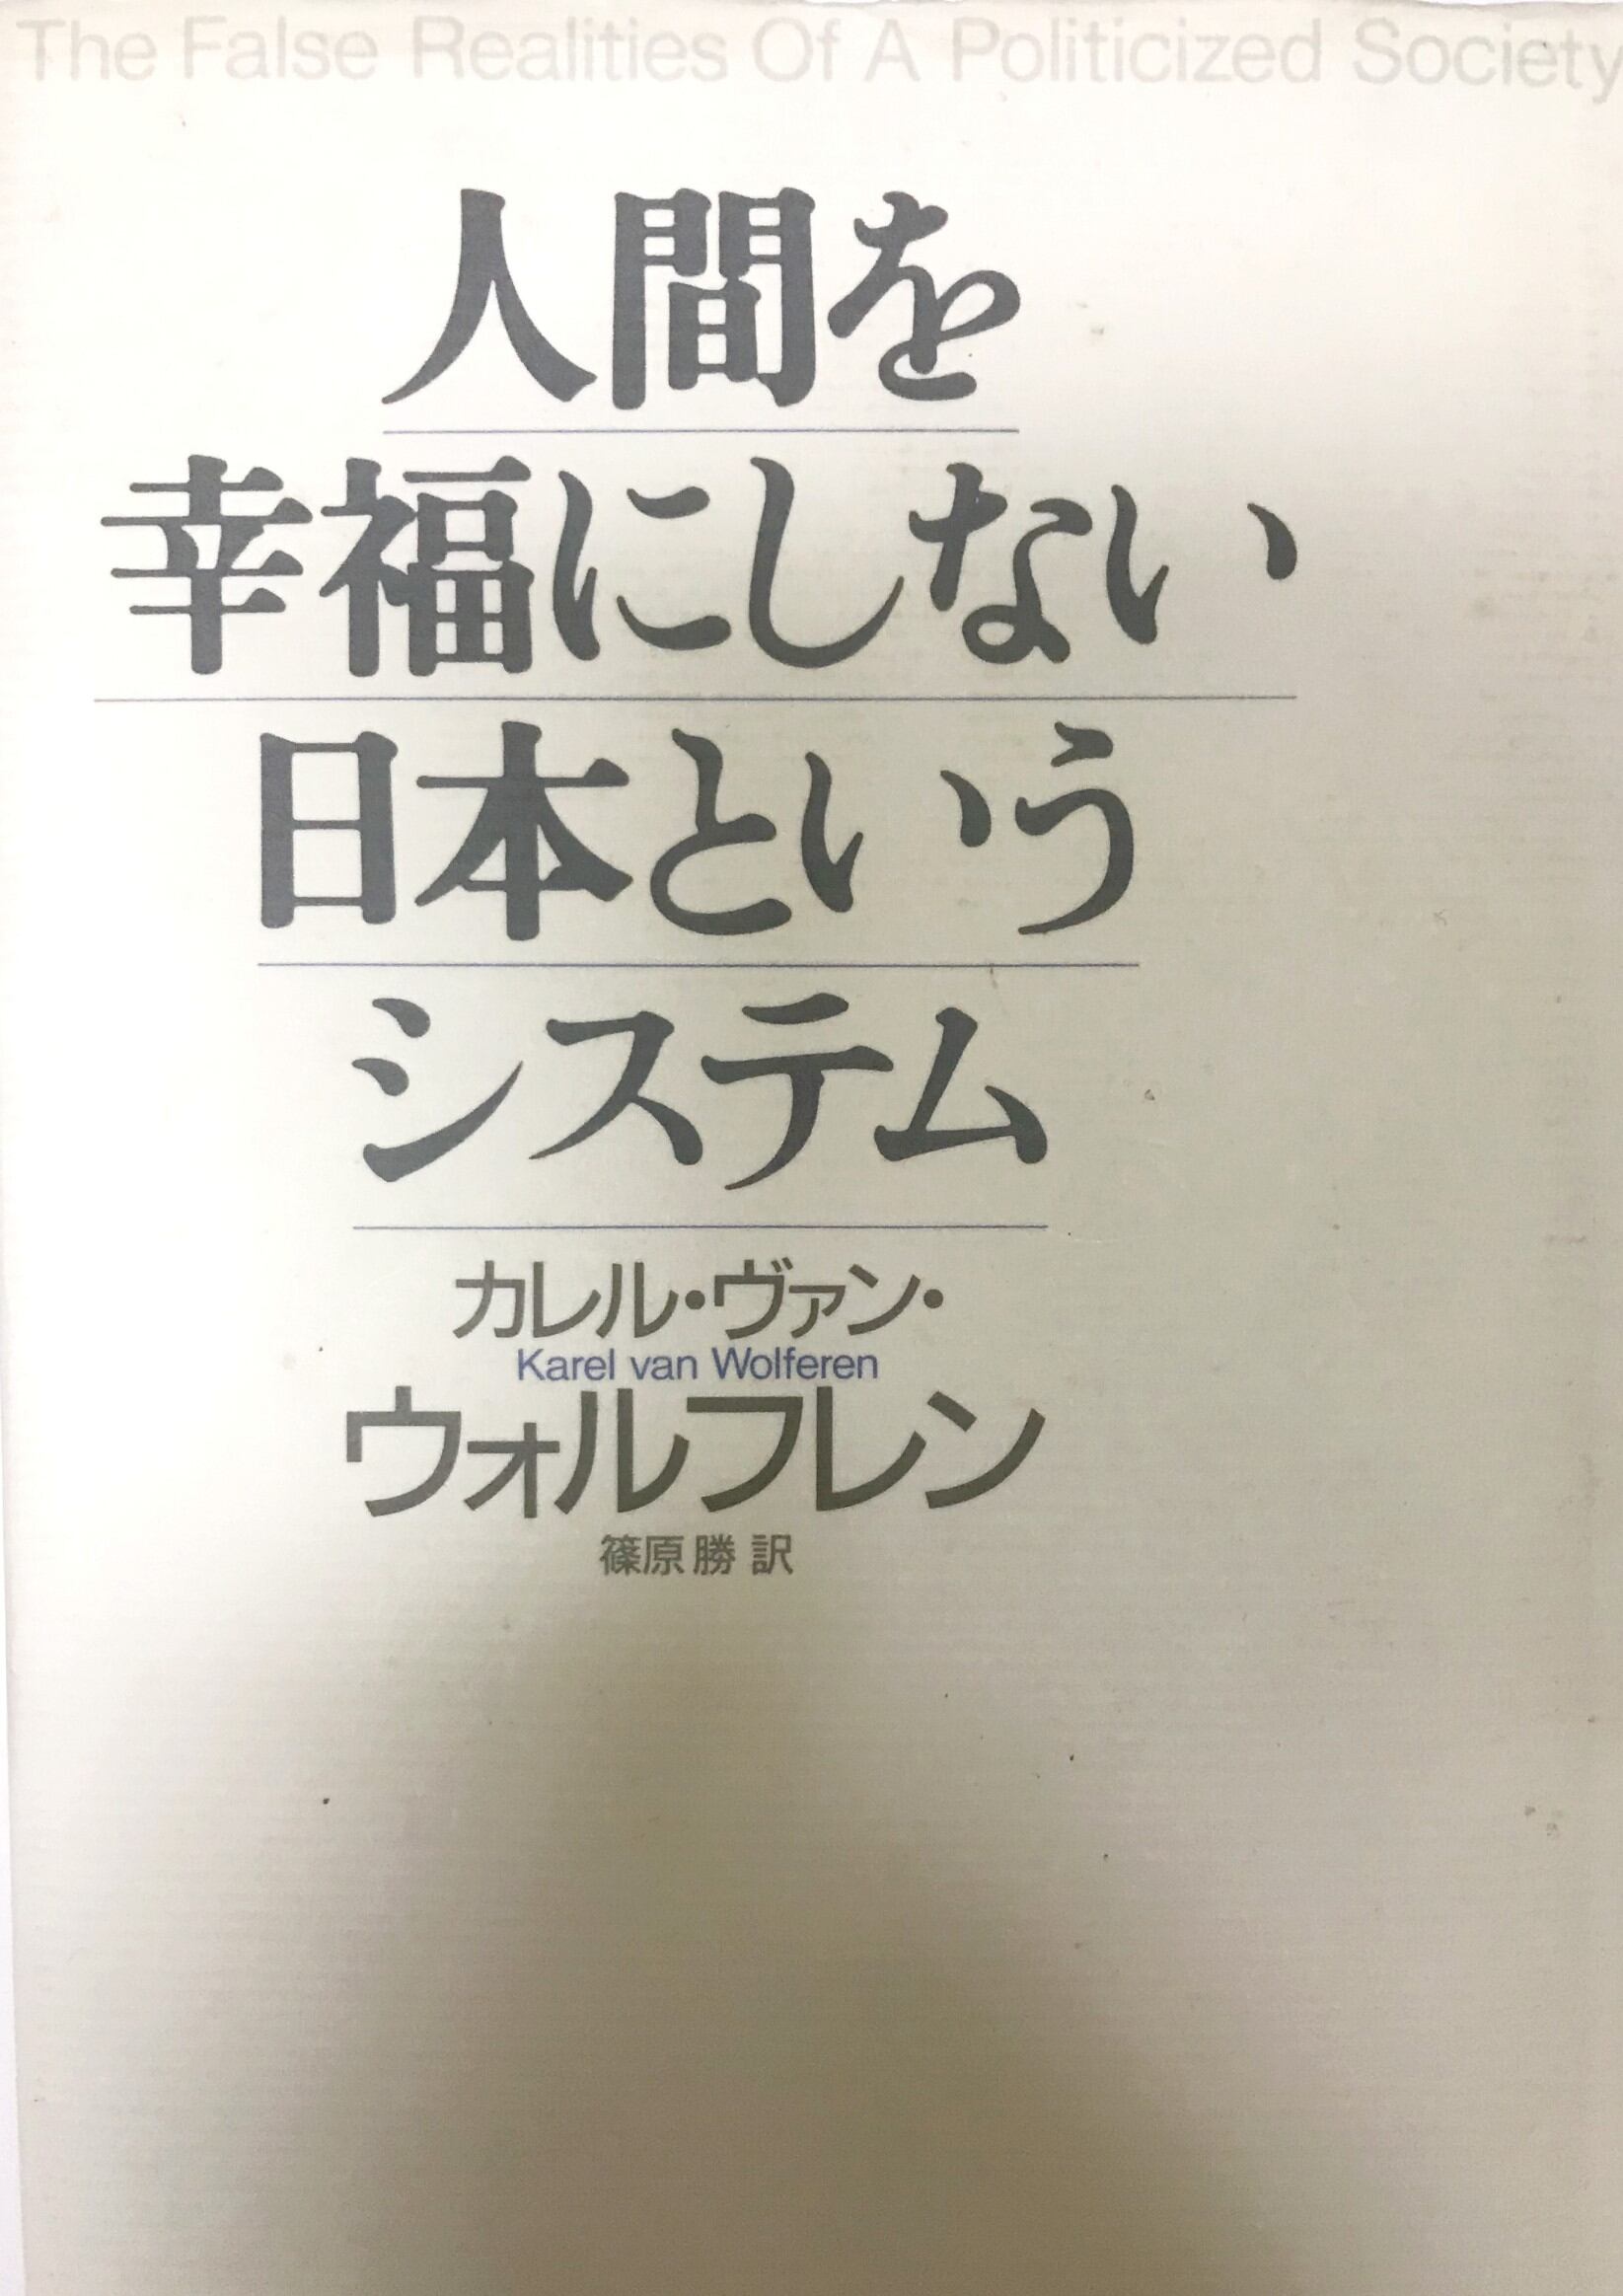 The False Realities Of A Politicized Society
人間を
幸福にしない
日本という
システム
カレル・ヴァン・
Karel van Wolferen
ウォルフレン
篠原勝 訳